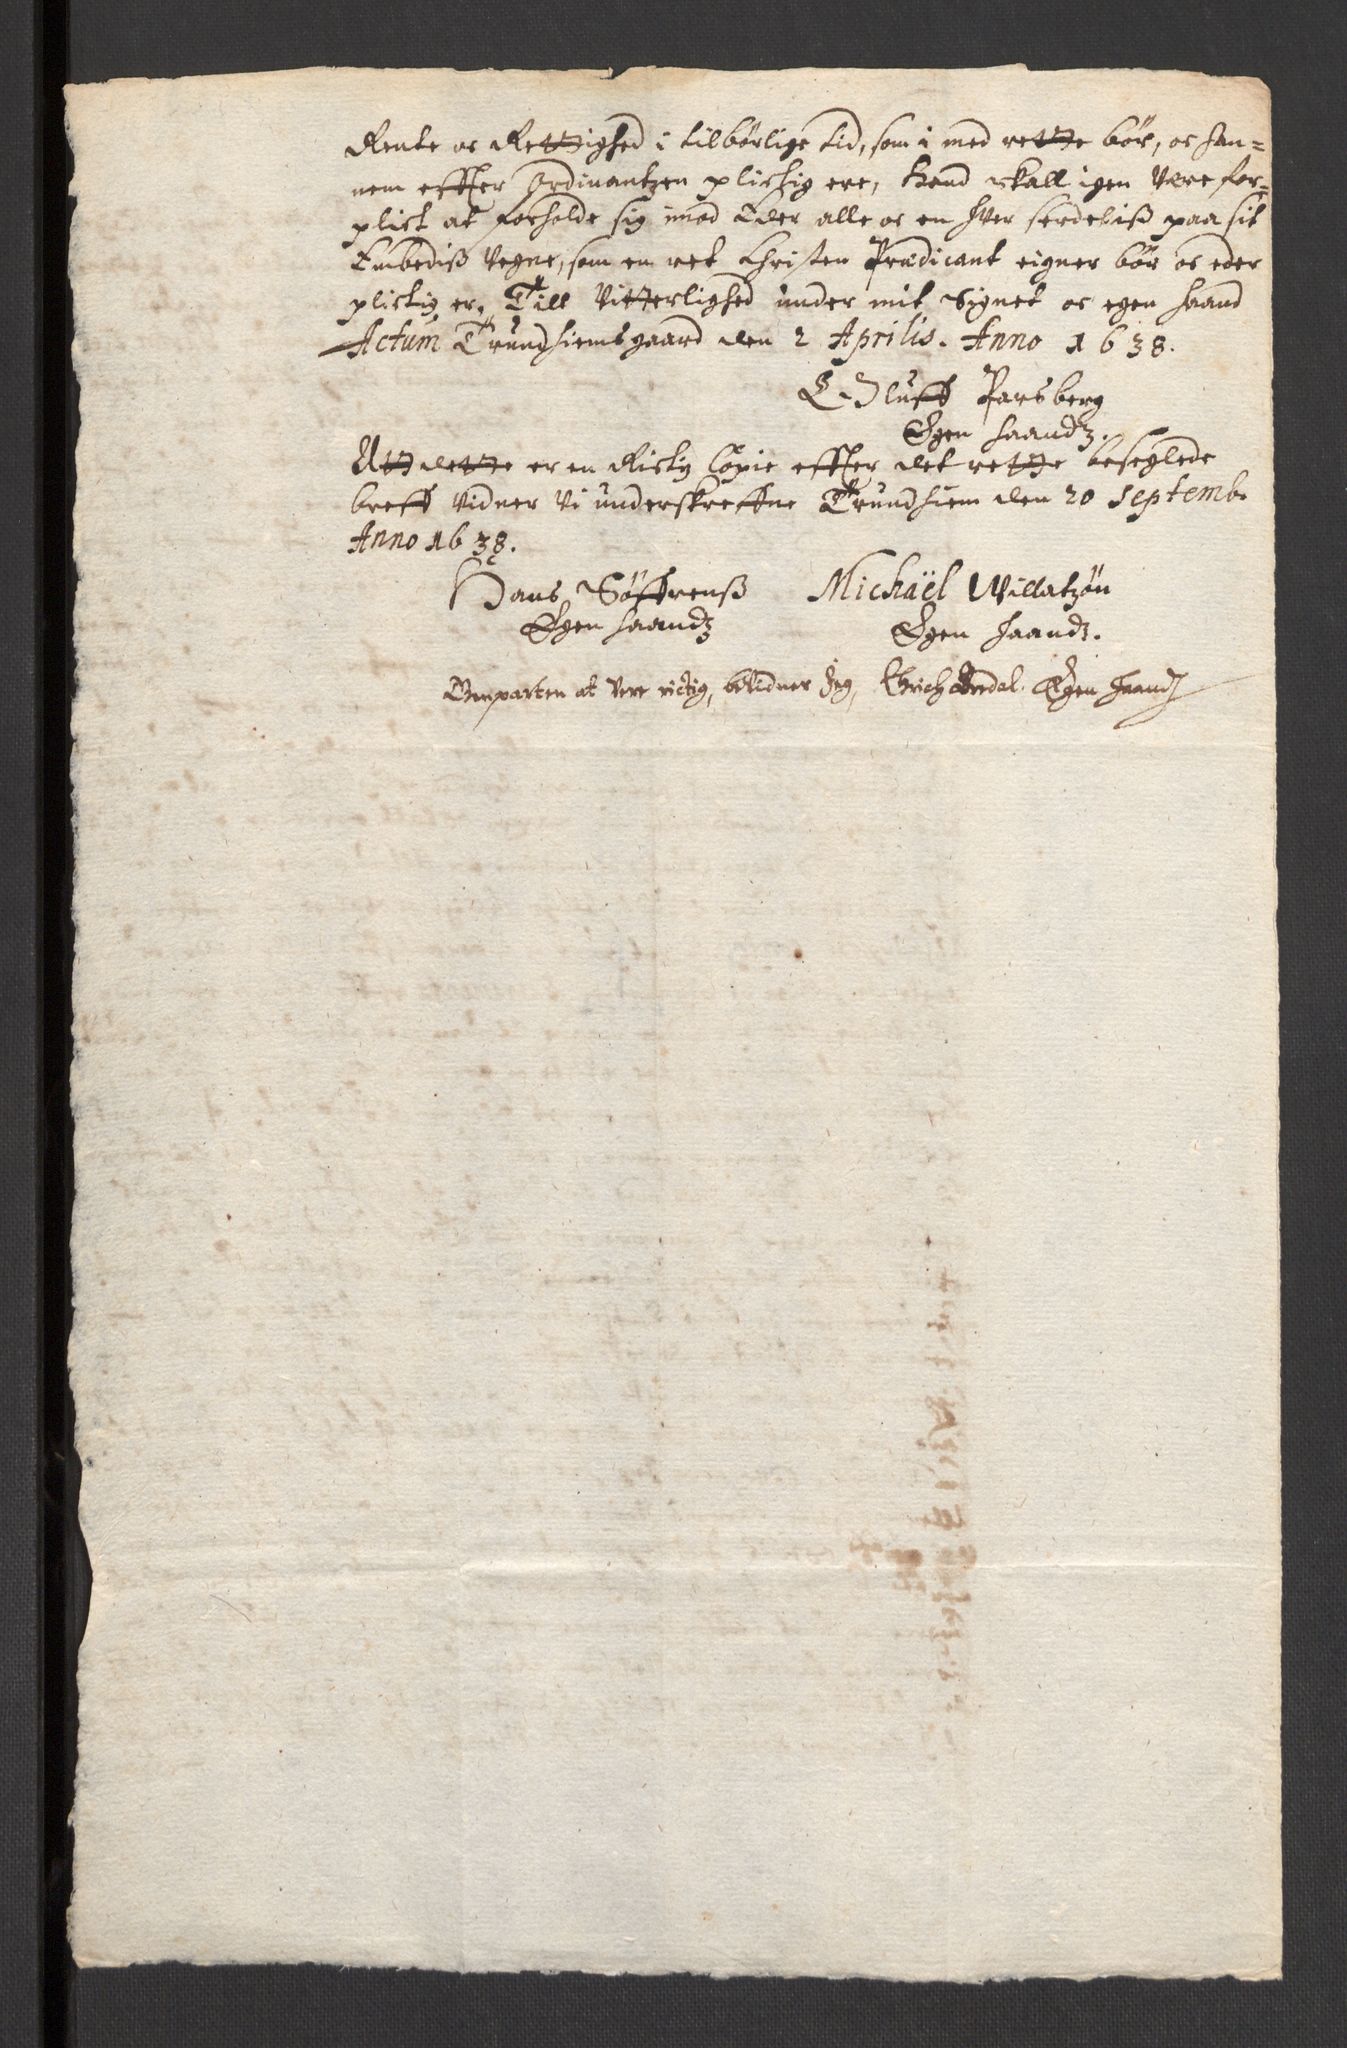 Rente oc Rettighed i tilbørlige tid, som i med rette bør, oc han-
nem effter Ordinantzen plichtig ere, Hand skall igen være for-
plict at forholde sig imod Eder alle oc en hver serdeliß paa sit
Embediß Vegne, som en ret Christen Prædicant eigner bør oc eder
plictig er, Till Vitterlighed under mit Signet oc egen haand
Actum Trundhiems gaard den 2 Aprilis. Anno 1638.
Oluff Parsberg
Egen haandz.
Att dette er en Rictig Copie effter det rette beseglede
breff vidner Vi underskreffne Trundhiem den 20 Septemb.
Anno 1638.
Hans Søffrenß Michaël Willatzøn
Egen haandz Egen haandz.
Genparten at Vere rictig, bevidner Jeg, Erich Bredal. Egen haand